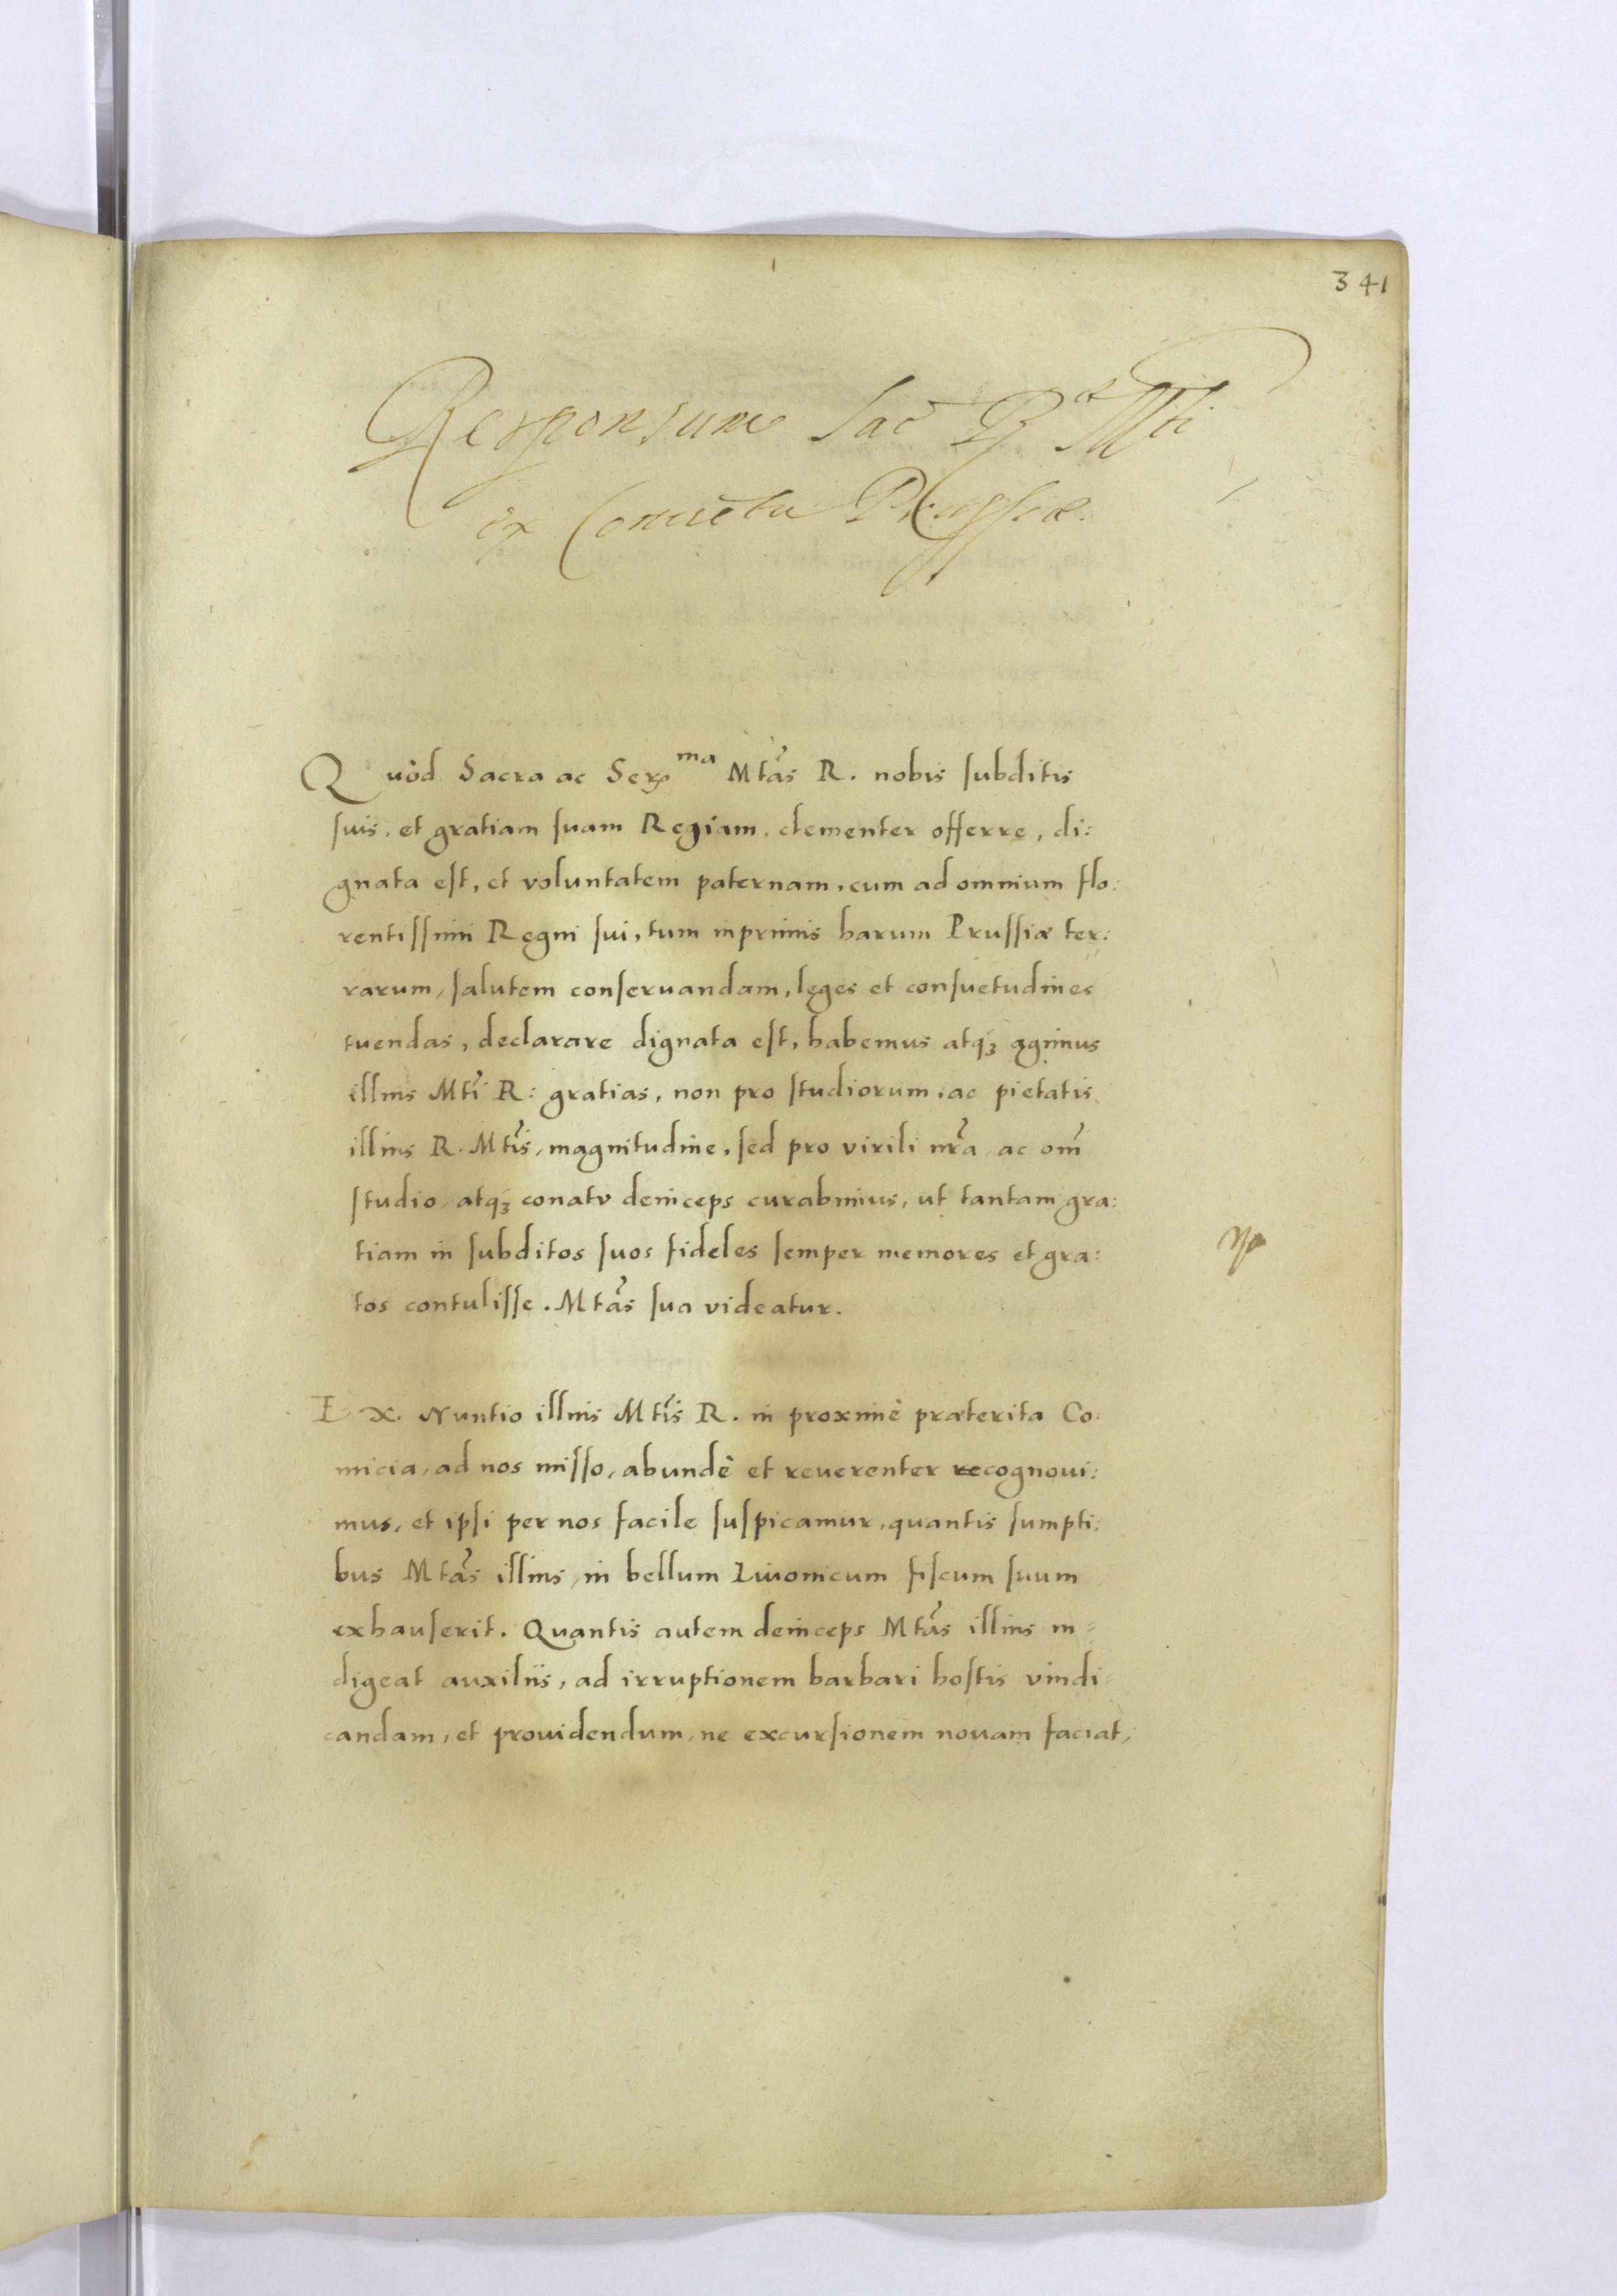 341
Responsum Sac R. Mti
ex Conuētu Prussiæ.
Quòd Sacra ac Ser.ma Mtãs R. nobis subditis
suis, et gratiam suam Regiam, clementer offerre, di:
gnata est, et voluntatem paternam, cum ad omnium flo:
rentissimi Regni sui, tum inprimis harum Prussiæ ter:
rarum, salutem conseruandam, leges et consuetudines
tuendas, declarare dignata est, habemus atq; agimus
illius Mtĩ R: gratias, non pro studiorum, ac pietatis
illius R. Mtĩs, magnitudine, sed pro virili nr̃a, ac om̃i
studio, atq; conatu deinceps curabimus, ut tantam gra:
tiam in subditos suos fideles semper memores et gra:
tos contulisse. Mtãs sua videatur.
Ex Nuntio illius Mtĩs R. in proximè præterita Co:
micia, ad nos misso, abundè et reuerenter recognoui:
mus, et ipsi per nos facile suspicamur, quantis sumpti:
bus Mtãs illius, in bellum Liuonicum fiscum suum
exhauserit. Quantis autem deinceps Mtãs illius in=
digeat auxiliis, ad irruptionem barbari hostis vindi
candam, et prouidendum, ne excursionem nouam faciat,